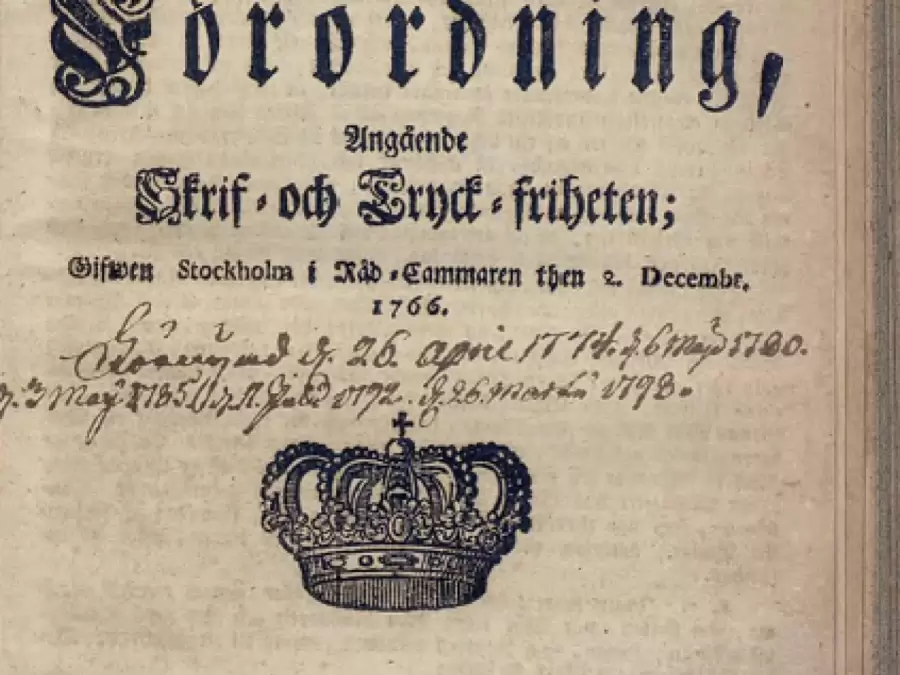 Förordning,
Angående
Skrif-och Tryck-friheten;
Gifwen Stockholm i Råd-Cammaren then 2. Decembr.
1766.
d. 26. april 1774. d. 6 Maÿ 1780.
d. 3 Maÿ 1785 d. 11. Julii 1792. d. 26. Martii 1798.